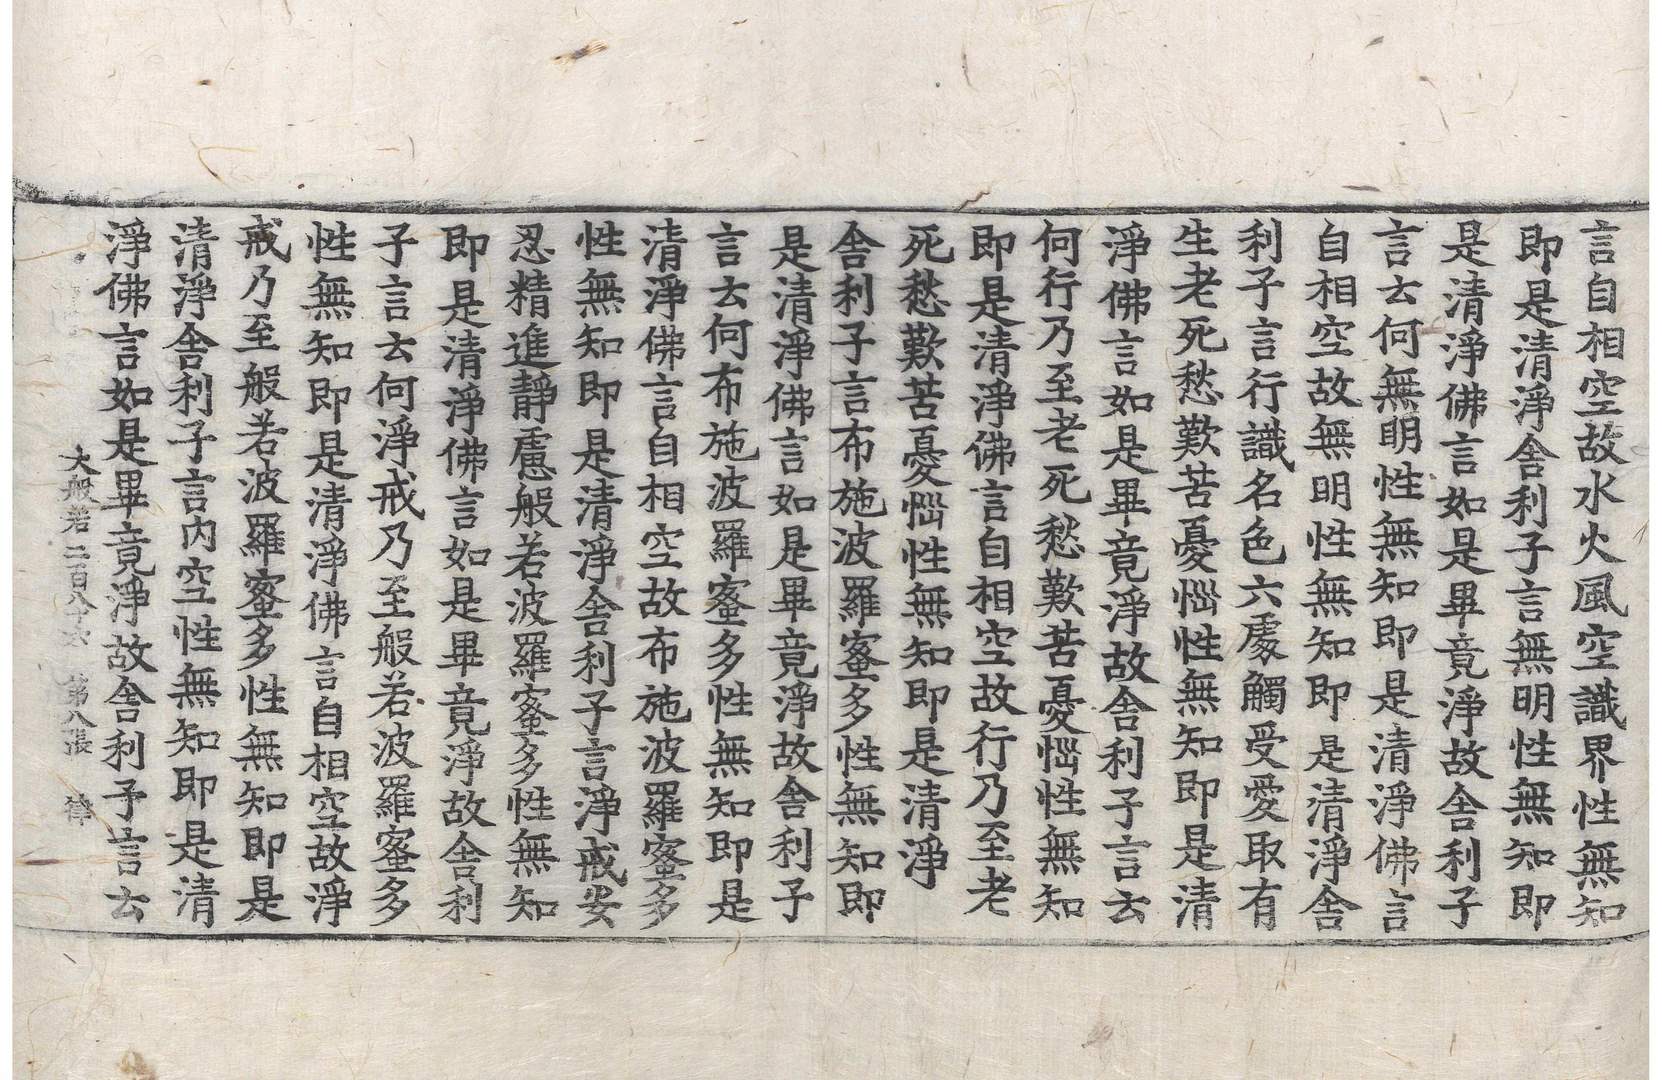 言自相空故水火風空識界性無知
即是清淨舍利子言無明性無知即
是清淨佛言如是畢竟淨故舍利子
言云何無明性無知即是清淨佛言
自相空故無明性無知即是清淨舍
利子言行識名色六處觸受愛取有
生老死愁歎苦憂惱性無知即是清
淨佛言如是畢竟淨故舍利子言云
何行乃至老死愁歎苦憂惱性無知
即是清淨佛言自相空故行乃至老
死愁歎苦憂惱性無知即是清淨
舍利子言布施波羅蜜多性無知即
是清淨佛言如是畢竟淨故舍利子
言云何布施波羅蜜多性無知即是
清淨佛言自相空故布施波羅蜜多
性無知即是清淨舍利子言淨戒安
忍精進靜慮般若波羅蜜多性無知
即是清淨佛言如是畢竟淨故舍利
子言云何淨戒乃至般若波羅蜜多
性無知即是清淨佛言自相空故淨
戒乃至般若波羅蜜多性無知即是
清淨舍利子言內空性無知即是清
淨佛言如是畢竟淨故舍利子言云
大般若二百八十六 第八張 律